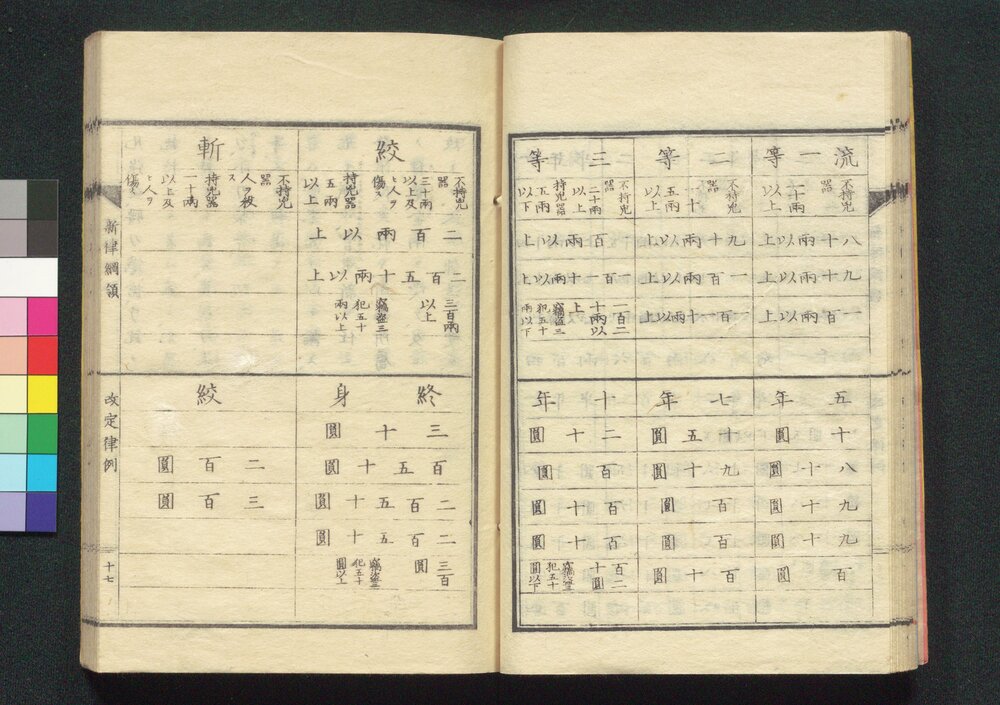 流一等
二等
三等
不持兇器二十兩以上
不持兇器五十兩以上
不持兇器二十兩以上
持兇器五兩以下
八十兩以上
九十兩以上
一百兩以上
九十兩以上
一百兩以上
一百一十兩以上
一百兩以上
一百一十兩以上
一百二十兩以上
竊盜三犯五十兩以下
五年
七年
十年
十圓
十五圓
二十圓
八十圓
九十圓
百圓
九十圓
百圓
百十圓
九十圓
百圓
百十圓
百圓
百十圓
百二十圓
竊盜三犯五十圓以下
絞
斬
不持兇器三十兩以上及ヒ人ヲ傷ス
持兇器五兩以上
不持兇器人ヲ殺ス
持兇器一十兩以上及ヒ人ヲ傷ス
二百兩以上
二百五十兩以上
三百兩以上
竊盜三犯五十兩以上
終身
絞
三十圓
百五十圓
二百圓
二百五十圓
三百圓
二百五十圓
三百圓
竊盜三犯五十圓以上
新律綱領
改定律例
十七